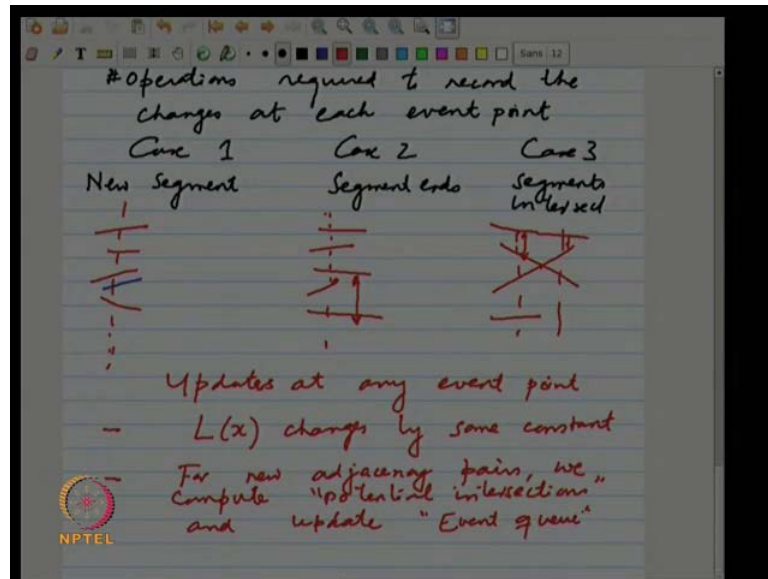 Sans 12
# Operations required to record the
changes at each event point
Case 1 Case 2 Case 3
New Segment Segment ends Segments
intersect
Updates at any event point
- L(x) changes by some constant
- For new adjacency pairs, we
compute "potential intersections"
and update "Event queue"
NPTEL